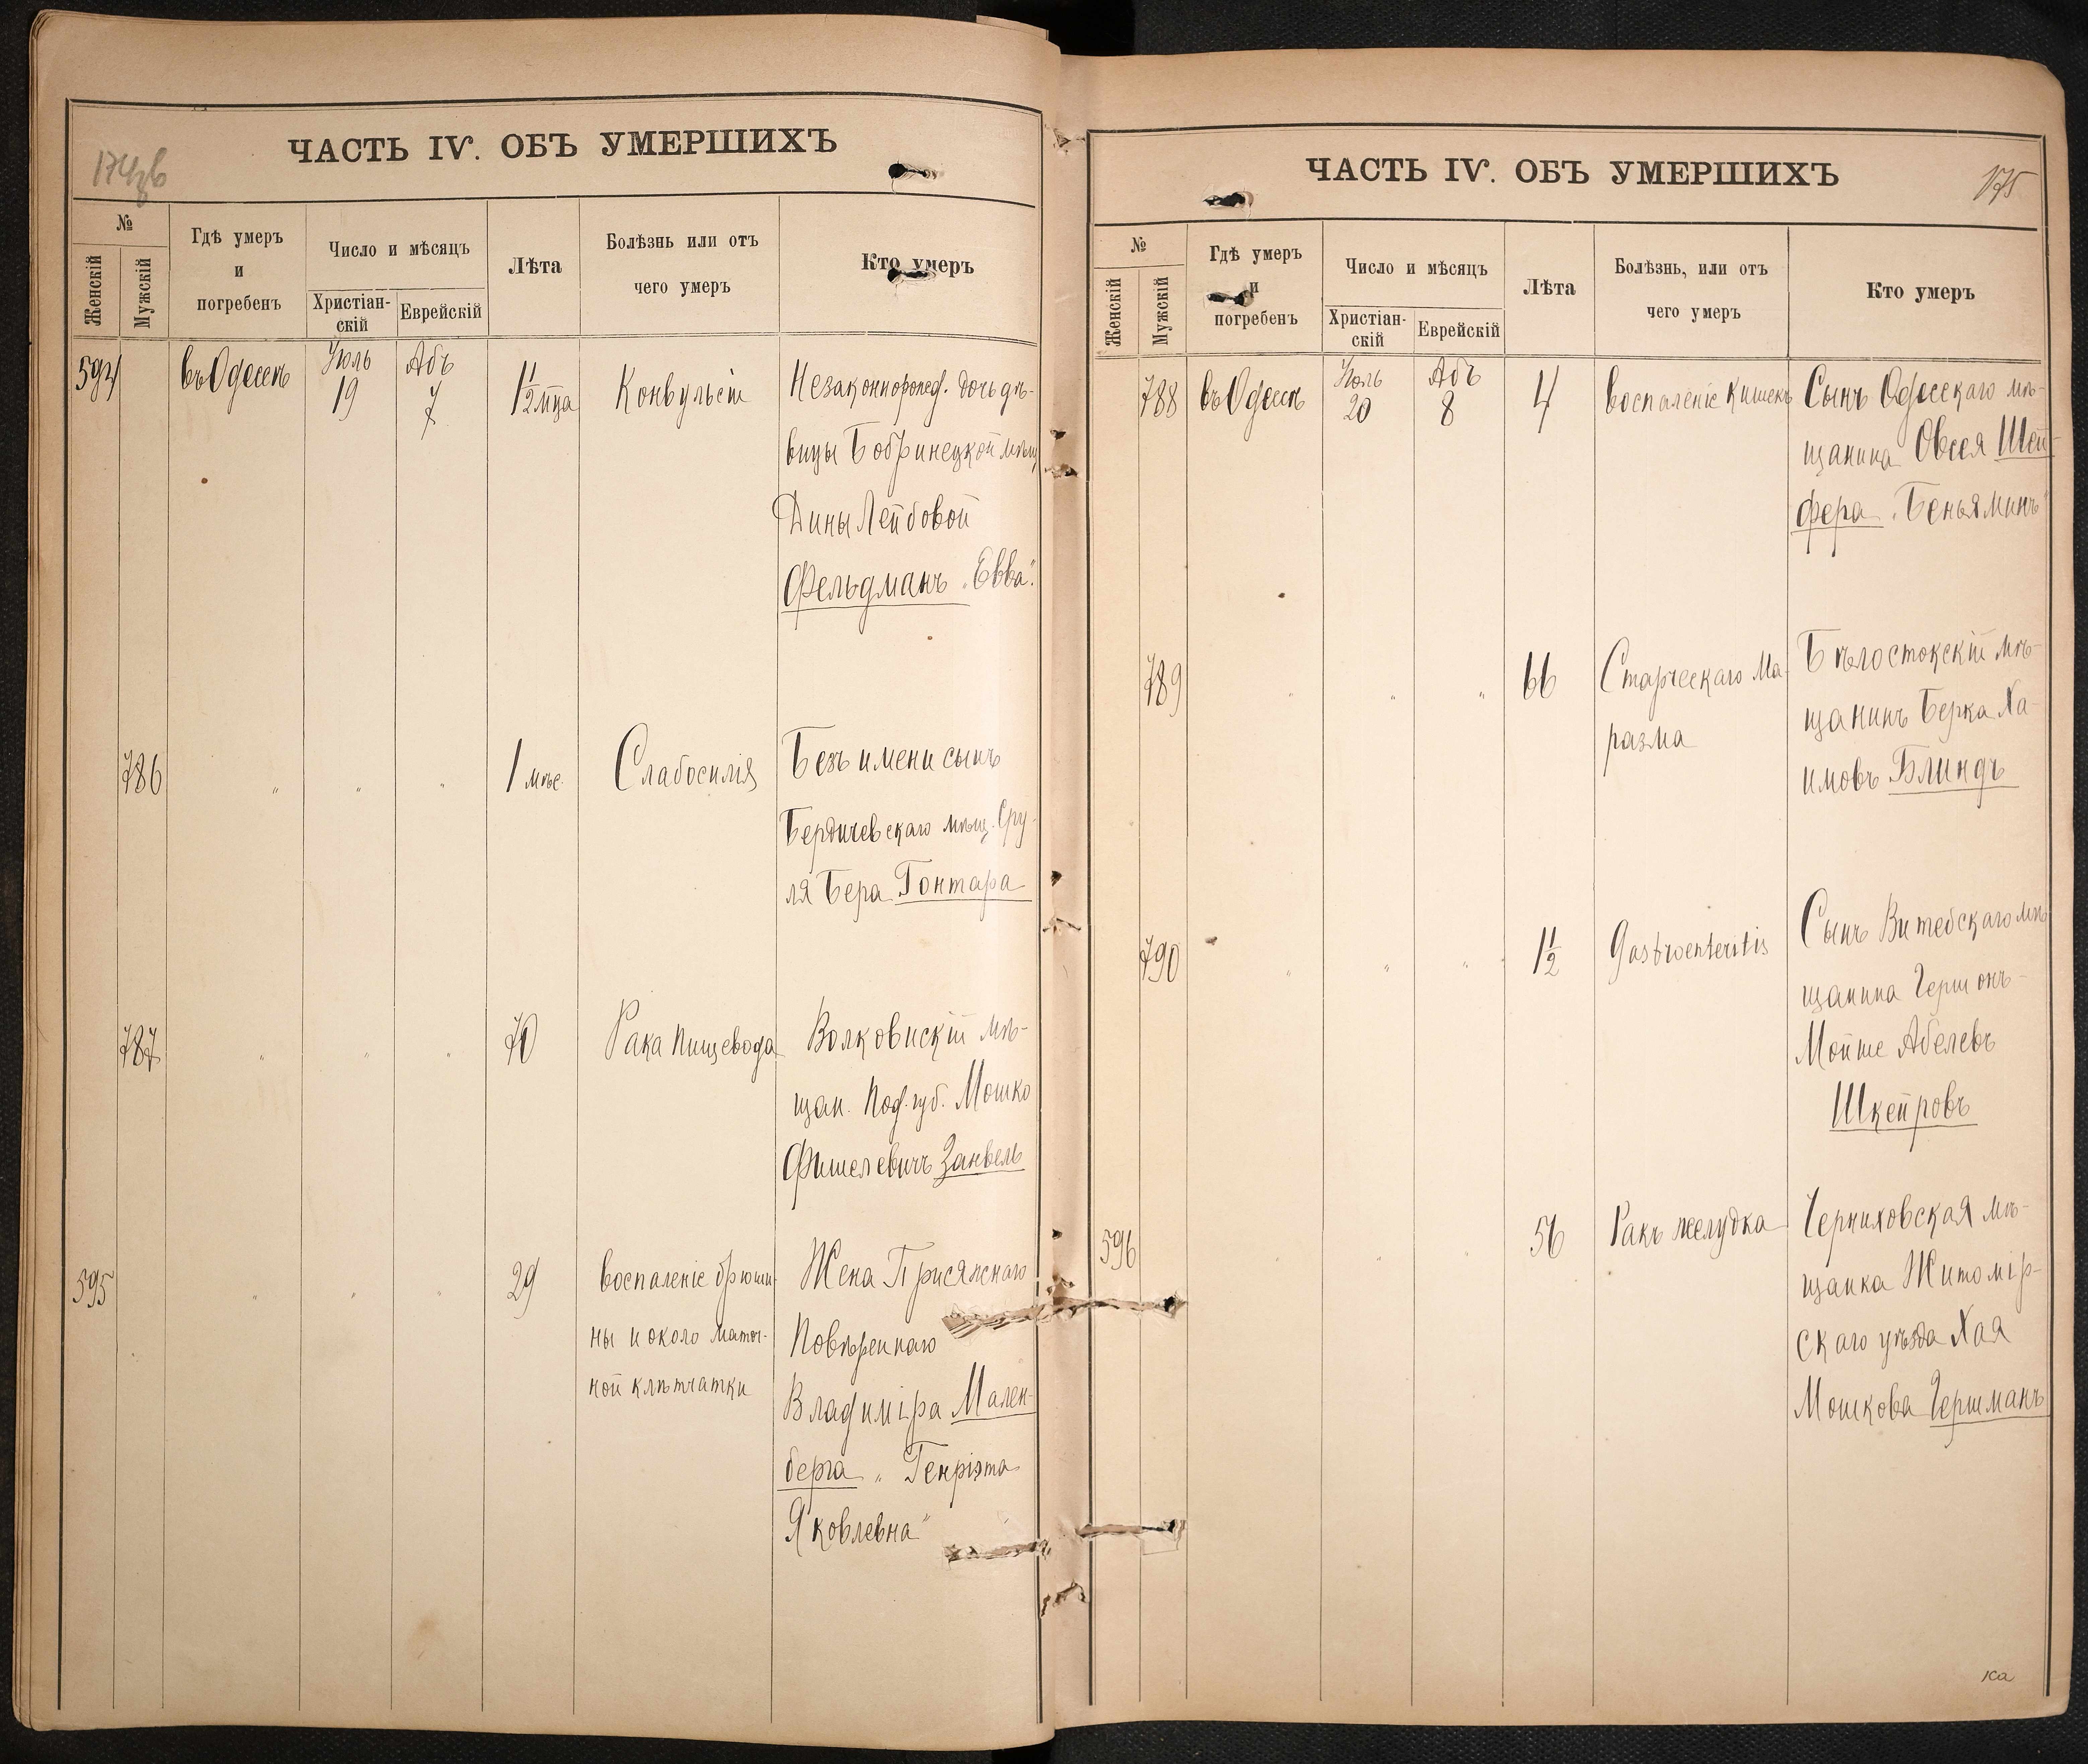 174об
ЧАСТЬ IV. ОБЪ УМЕРШИХЪ
№
Женскій
Мужскій
Гдѣ умеръ
и
погребенъ
Число и мѣсяцъ
Христіан-
скій
Еврейскій
Лѣта
Болѣзнь или отъ
чего умеръ
Кто умеръ
594 въ Одессѣ Іюль 19 Абъ 7 1½ мца Конвульсіи Незаконнорожд. дочь дѣ-
вицы Бобринецкой мѣщ
Дины Лейбовой
Фельдманъ „Евва“.
786 „ „ „ 1 мѣс. Слабосилія Безъ имени сынъ
Бердичевскаго мѣщ. Сру-
ля Бера Гонтара
787 „ „ „ 70 Рака пищевода Волковискій мѣ-
щан. Под. губ. Мошко
Фишелевичъ Занвель
595 „ „ „ 29 воспаленіе брюши- Жена Присяжнаго
ны и около маточ- Повѣреннаго
ной клѣтчатки Владиміра Мален-
берга „Генріэта
Яковлевна“
175
ЧАСТЬ IV. ОБЪ УМЕРШИХЪ
№
Женскій
Мужскій
Гдѣ умеръ
и
погребенъ
Число и мѣсяцъ
Христіан-
скій
Еврейскій
Лѣта
Болѣзнь, или отъ
чего умеръ
Кто умеръ
788 въ Одессѣ Іюль 20 Абъ 8 4 воспаленіе кишекъ Сынъ Одесскаго мѣ-
щанина Овсея Шей-
фера „Беньяминъ“
789 „ „ „ 66 Старческаго Ма- Бѣлостокскій мѣ-
разма щанинъ Берка Ха-
имовъ Блиндъ
790 „ „ „ 1½ Gastroenteritis Сынъ Витебскаго мѣ
щанина Гершонъ-
Мойше Абелевъ
Шкейровъ
596 „ „ 56 Ракъ желудка Черниховская мѣ-
щанка Житомір-
скаго уѣзда Хая
Мошкова Гершманъ